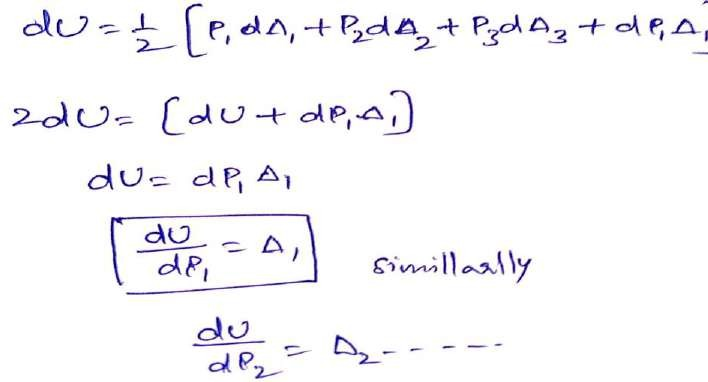 dU = 1/2 [P₁dΔ₁ + P₂dΔ₂ + P₃dΔ₃ + dP₁Δ₁
2dU = [dU + dP₁Δ₁]
dU = dP₁Δ₁
dU/dP₁ = Δ₁ simillarlly
dU/dP₂ = Δ₂ - - - - -